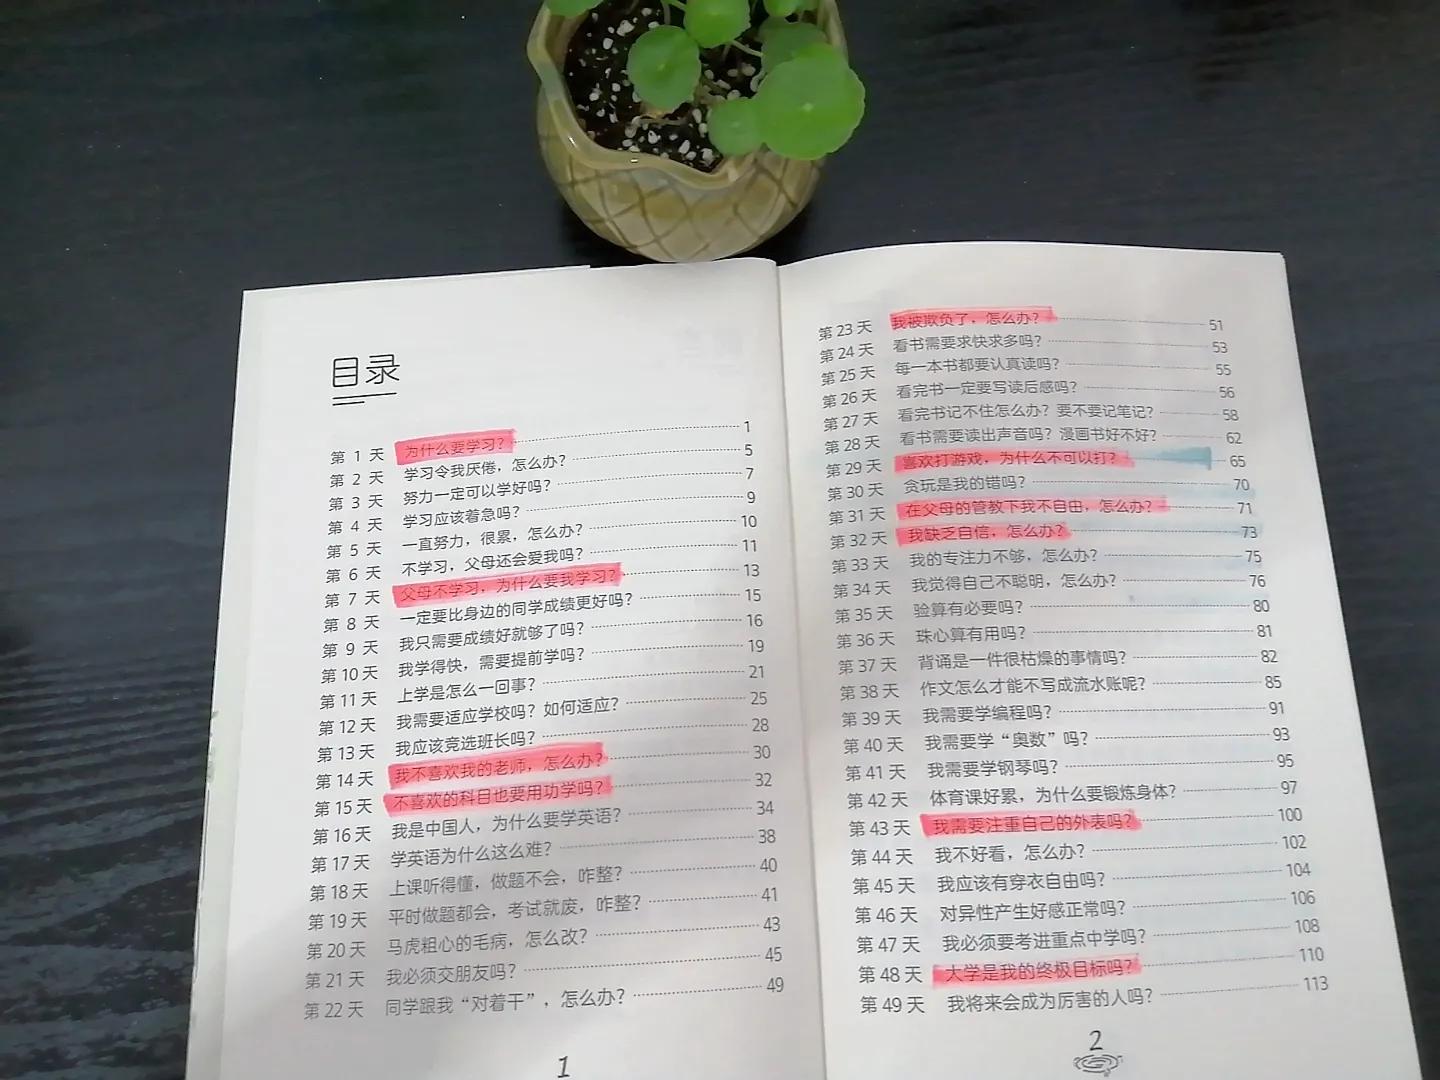 目录
第 1 天 为什么要学习? 1
第 2 天 学习令我厌倦，怎么办? 5
第 3 天 努力一定可以学好吗? 7
第 4 天 学习应该着急吗? 9
第 5 天 一直努力，很累，怎么办? 10
第 6 天 不学习，父母还会爱我吗? 11
第 7 天 父母不学习，为什么要我学习? 13
第 8 天 一定要比身边的同学成绩更好吗? 15
第 9 天 我只需要成绩好就够了吗? 16
第 10 天 我学得快，需要提前学吗? 19
第 11 天 上学是怎么一回事? 21
第 12 天 我需要适应学校吗? 如何适应? 25
第 13 天 我应该竞选班长吗? 28
第 14 天 我不喜欢我的老师，怎么办? 30
第 15 天 不喜欢的科目也要用功学吗? 32
第 16 天 我是中国人，为什么要学英语? 34
第 17 天 学英语为什么这么难? 38
第 18 天 上课听得懂，做题不会，咋整? 40
第 19 天 平时做题都会，考试就废，咋整? 41
第 20 天 马虎粗心的毛病，怎么改? 43
第 21 天 我必须交朋友吗? 45
第 22 天 同学跟我“对着干”，怎么办? 49
1
第 23 天 我被欺负了，怎么办? 51
第 24 天 看书需要求快求多吗? 53
第 25 天 每一本书都要认真读吗? 55
第 26 天 看完书一定要写读后感吗? 56
第 27 天 看完书记不住怎么办? 要不要记笔记? 58
第 28 天 看书需要读出声音吗? 漫画书好不好? 62
第 29 天 喜欢打游戏，为什么不可以打? 65
第 30 天 贪玩是我的错吗? 70
第 31 天 在父母的管教下我不自由，怎么办? 71
第 32 天 我缺乏自信，怎么办? 73
第 33 天 我的专注力不够，怎么办? 75
第 34 天 我觉得自己不聪明，怎么办? 76
第 35 天 验算有必要吗? 80
第 36 天 珠心算有用吗? 81
第 37 天 背诵是一件很枯燥的事情吗? 82
第 38 天 作文怎么才能不写成流水账呢? 85
第 39 天 我需要学编程吗? 91
第 40 天 我需要学“奥数”吗? 93
第 41 天 我需要学钢琴吗? 95
第 42 天 体育课好累，为什么要锻炼身体? 97
第 43 天 我需要注重自己的外表吗? 100
第 44 天 我不好看，怎么办? 102
第 45 天 我应该有穿衣自由吗? 104
第 46 天 对异性产生好感正常吗? 106
第 47 天 我必须要考进重点中学吗? 108
第 48 天 大学是我的终极目标吗? 110
第 49 天 我将来会成为厉害的人吗? 113
2